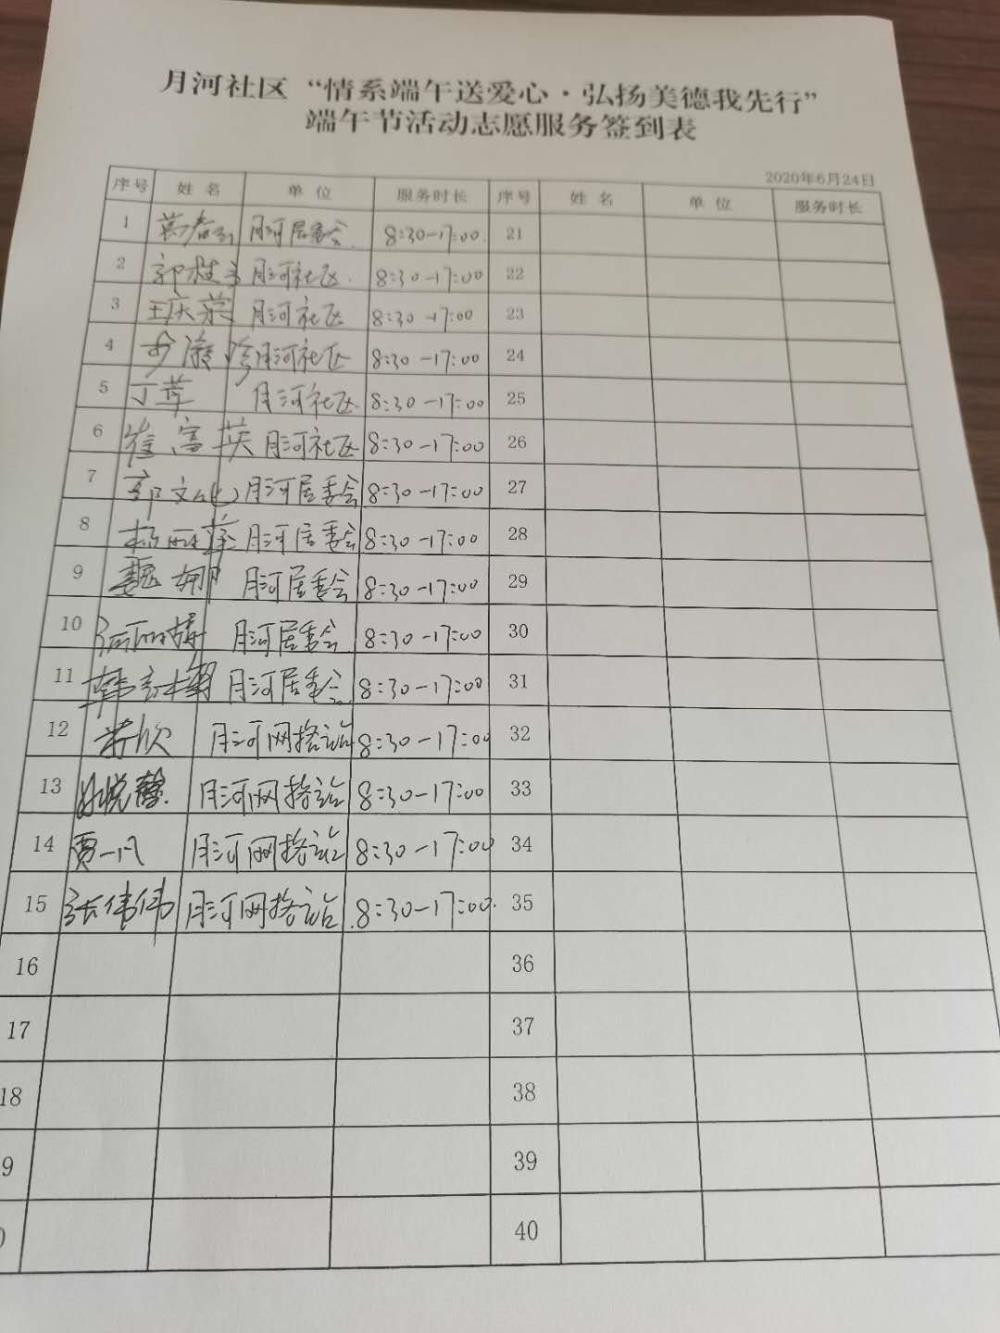 月河社区“情系端午送爱心·弘扬美德我先行”
端午节活动志愿服务签到表
2020年6月24日
序号 姓名 单位 服务时长 序号 姓名 单位 服务时长
1 月河居委会 8:30-17:00 21
2 月河社区 8:30-17:00 22
3 王庆荣 月河社区 8:30-17:00 23
4 月河社区 8:30-17:00 24
5 丁苹 月河社区 8:30-17:00 25
6 崔富英 月河社区 8:30-17:00 26
7 月河居委会 8:30-17:00 27
8 月河居委会 8:30-17:00 28
9 魏娜 月河居委会 8:30-17:00 29
10 月河居委会 8:30-17:00 30
11 月河居委会 8:30-17:00 31
12 月河网格站 8:30-17:00 32
13 月河网格站 8:30-17:00 33
14 贾一凡 月河网格站 8:30-17:00 34
15 张伟伟 月河网格站 8:30-17:00 35
16 36
17 37
18 38
9 39
0 40